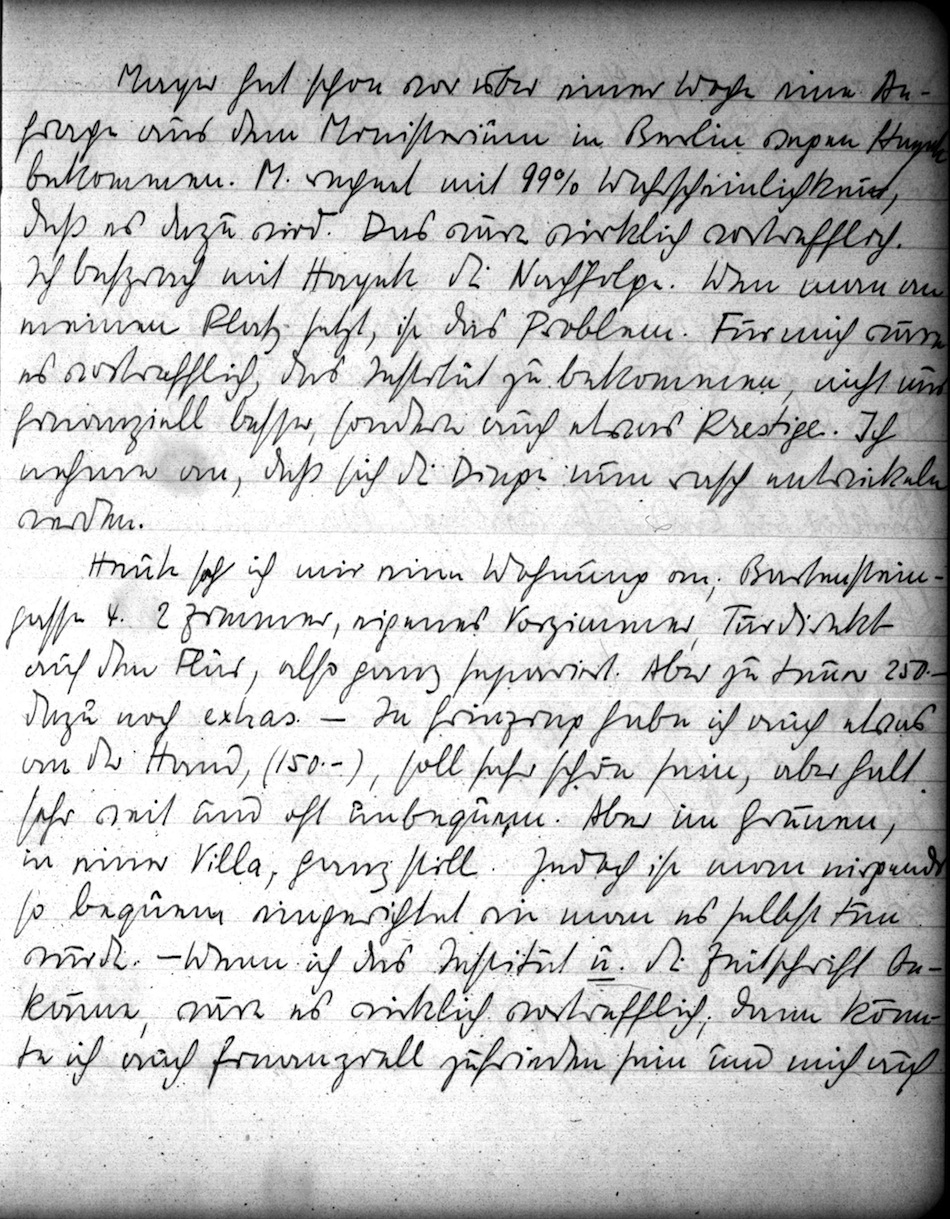 Mayer hat schon vor über einer Woche eine An-
frage aus dem Ministerium in Berlin wegen Hayek
bekommen. M. rechnet mit 99% Wahrscheinlichkeit,
daß es dazu wird. Das wäre wirklich vortrefflich.
Ich besprach mit Hayek die Nachfolge. Wen man an
meinen Platz setzt, ist das Problem. Für mich wäre
es vortrefflich, das Institut zu bekommen, nicht nur
finanziell besser, sondern auch etwas Prestige. Ich
nehme an, daß sich die Dinge nun rasch entwickeln
werden.
Heute sah ich mir eine Wohnung an, Bartenstein-
gasse 4. 2 Zimmer, eigenes Vorzimmer, Tür direkt
auf den Flur, also ganz separiert. Aber zu teuer 250.-
dazu noch extras. — In Grinzing habe ich auch etwas
an der Hand, (150.-), soll sehr schön sein, aber halt
sehr weit und oft unbequem. Aber im Grünen,
in einer Villa, ganz still. Jedoch ist man nirgends
so bequem eingerichtet wie man es selbst tun
würde. — Wenn ich das Institut u. die Zeitschrift be-
käme, wäre es wirklich vortrefflich; dann könn-
te ich auch finanziell zufrieden sein und mich auch